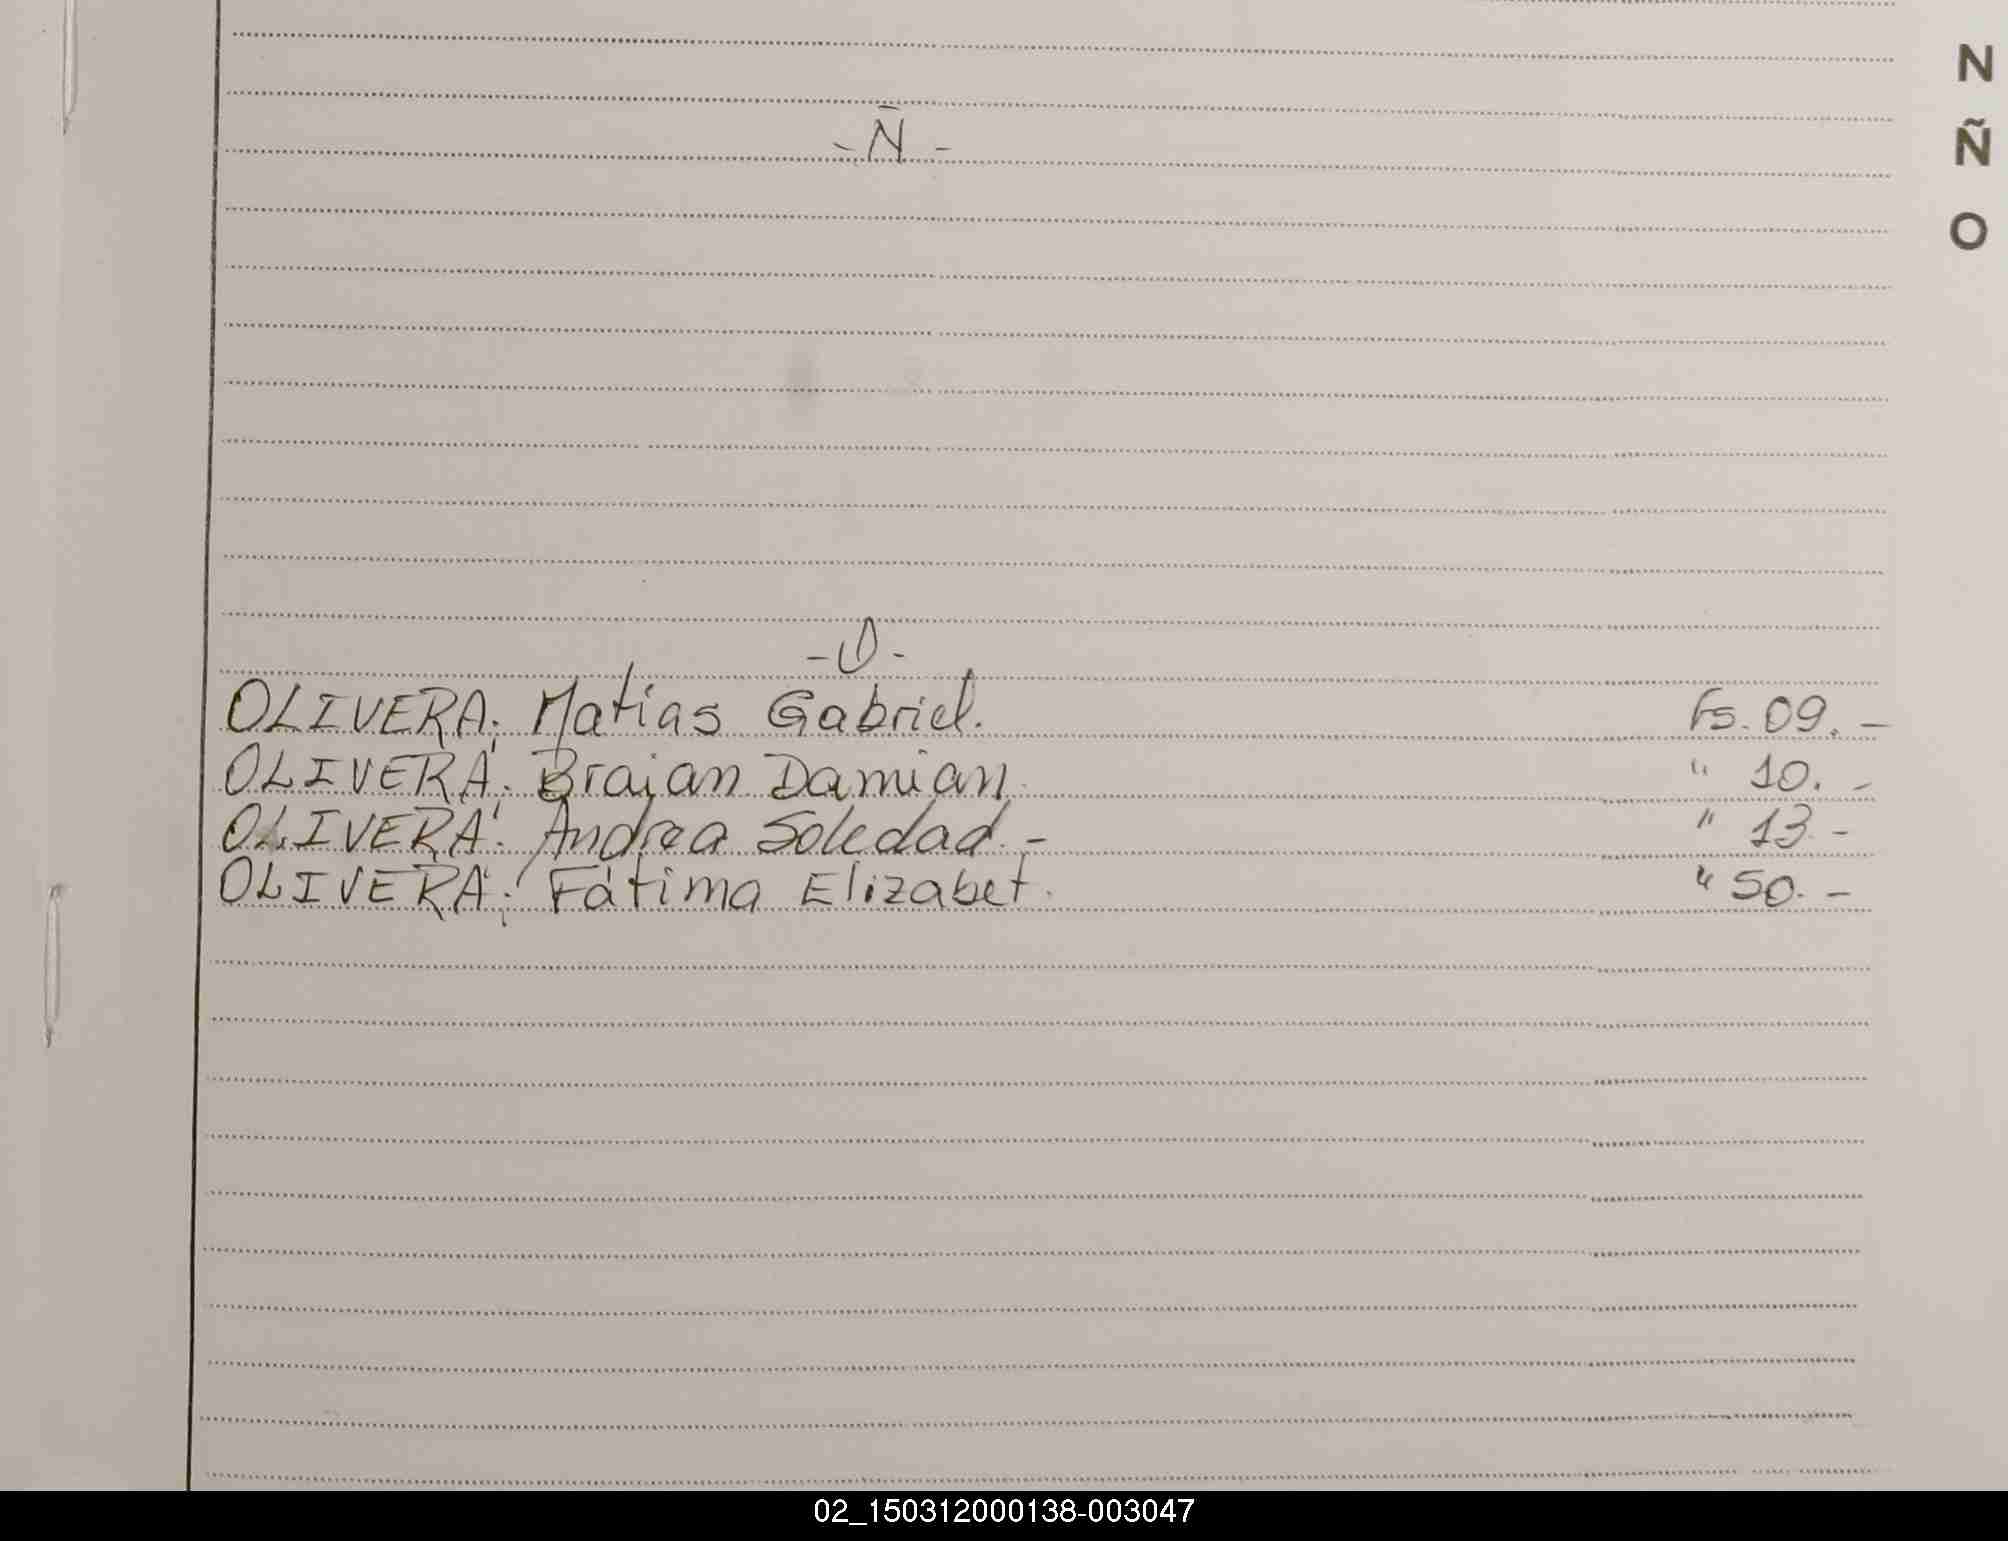 N
Ñ
O
-Ñ-
-O-
OLIVERA; Matias Gabriel. Fs. 09.-
OLIVERA; Braian Damian. " 10.-
OLIVERA; Andrea Soledad.- " 13.-
OLIVERA; Fátima Elizabet. " 50.-
02_150312000138-003047